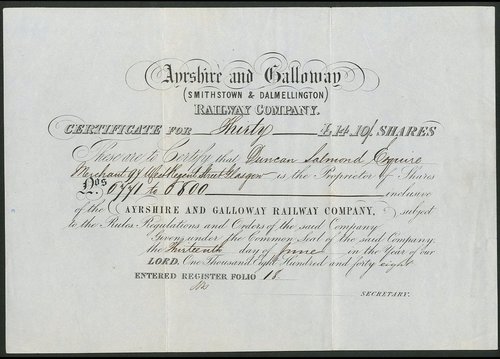 Ayrshire and Galloway
(SMITHSTOWN & DALMELLINGTON)
RAILWAY COMPANY.
CERTIFICATE FOR Thirty £14.10/ SHARES
These are to Certify that Duncan Salmond Esquire
Merchant 97 West Regent Street Glasgow is the Proprietor of Shares
Nos 0771 to 0800 inclusive
of the AYRSHIRE AND GALLOWAY RAILWAY COMPANY, subject
to the Rules Regulations and Orders of the said Company
Given under the Common Seal of the said Company,
the Thirteenth day of June in the Year of our
LORD, One Thousand Eight Hundred and forty eight
ENTERED REGISTER FOLIO 18
SECRETARY.